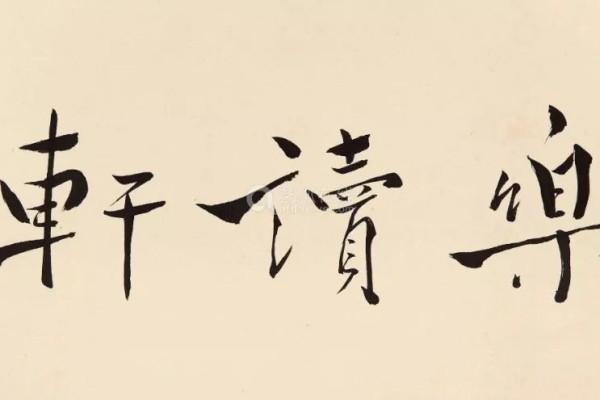 樂讀軒